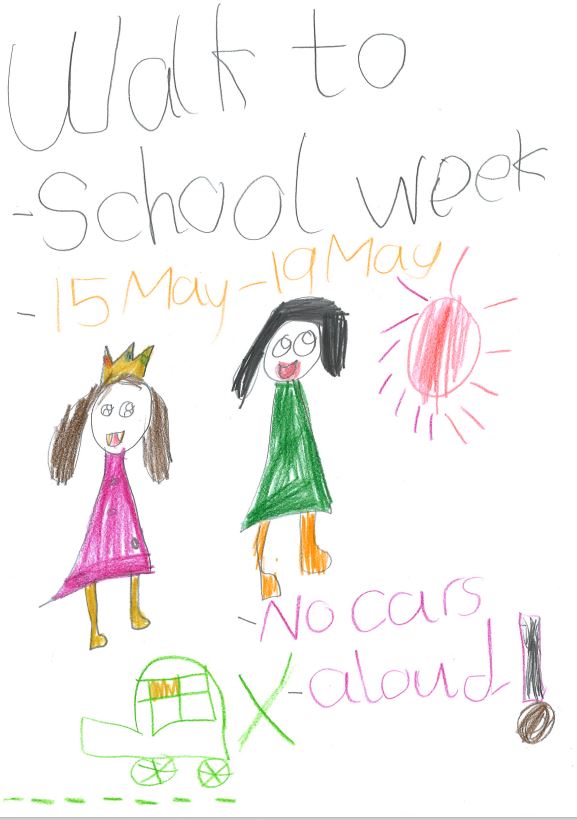 Walk to
-School week
-15 May-19 May
-No cars
X-aloud!